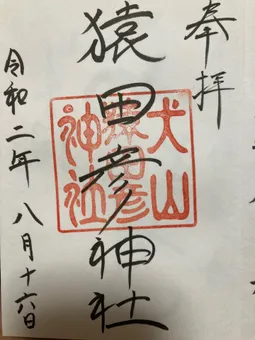 奉拝
猿田彦神社
犬山
猿田彦
神社
令和二年八月十六日